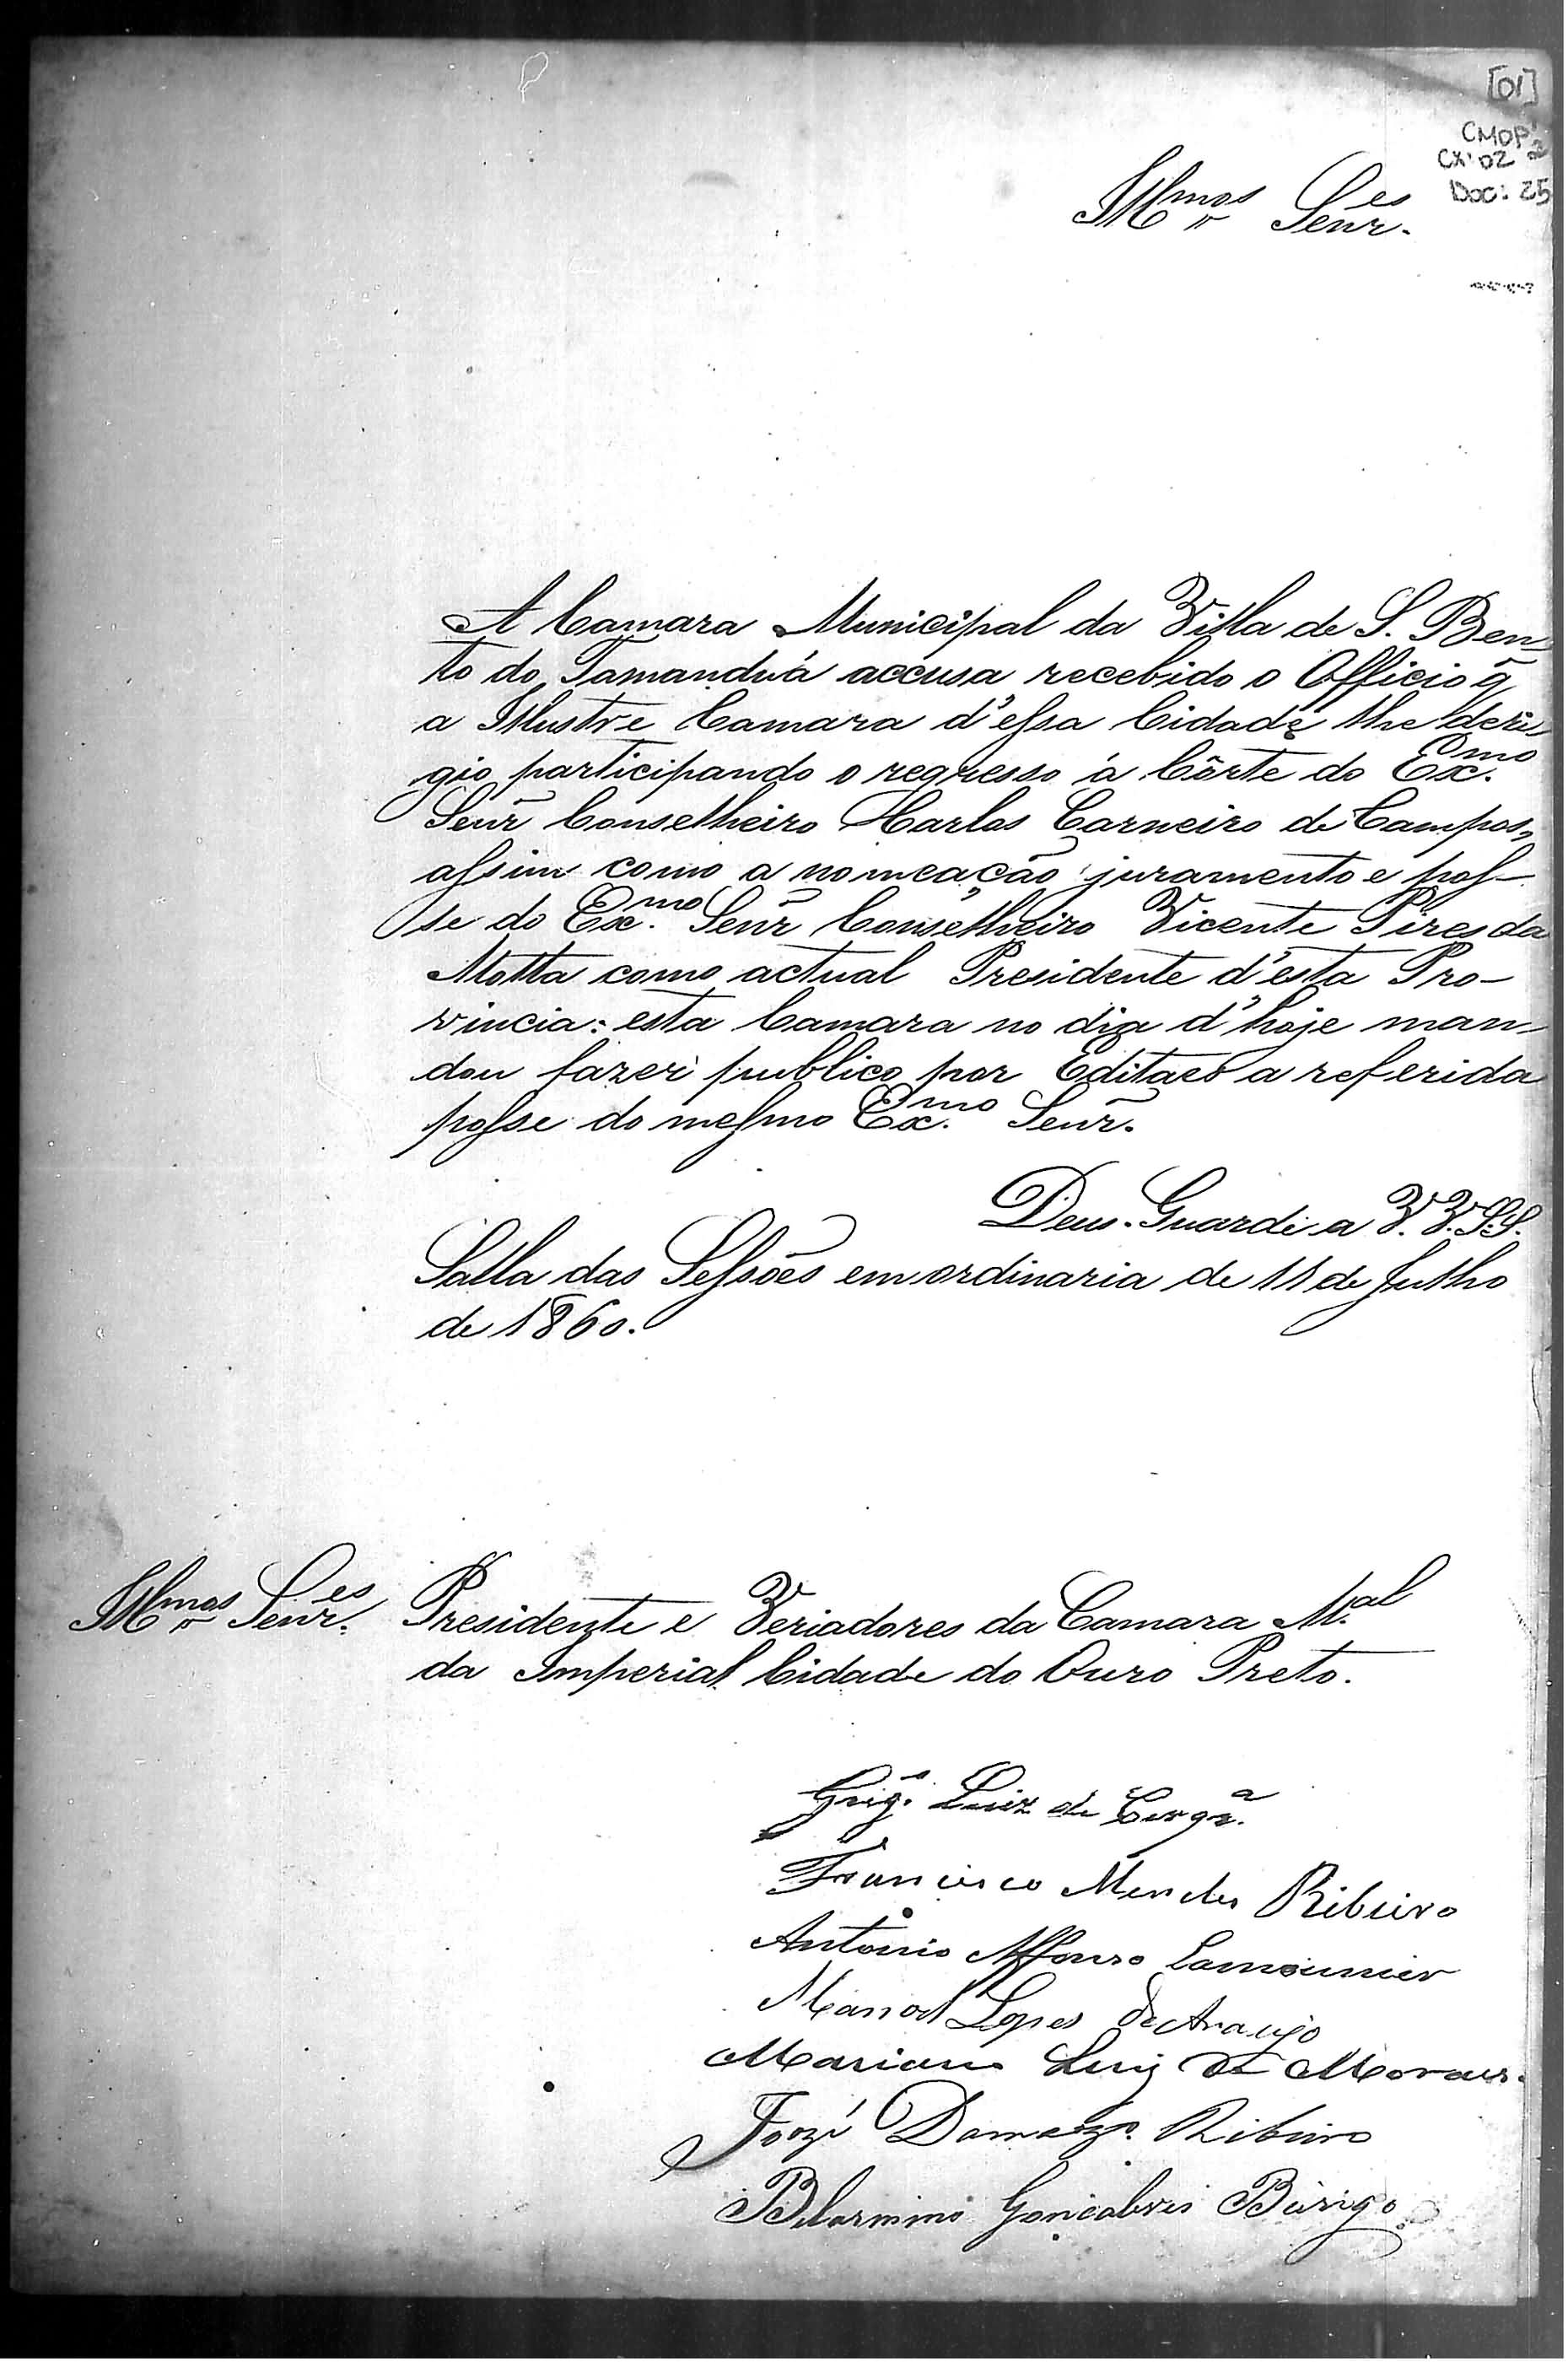 [01]
CMOP
CX: 02
Doc: 25
Illmos Senres.
A Camara Municipal da Villa de S. Ben-
to do Tamanduá accusa recebido o Officio q̃
a Illustre Camara d'essa Cidade lhe deri-
gio, participando o regresso á Côrte do Exmo.
Senr̃ Conselheiro Carlos Carneiro de Campos,
assim como a nomeação, juramento e pos-
se do Exmo. Senr̃ Conselheiro Vicente Pires da
Motta como actual Presidente d'esta Pro-
vincia: esta Camara no dia d'hoje man-
dou fazer publico por Editaes a referida
posse do mesmo Exmo. Senr̃.
Deus Guarde a V.V.S.S.
Salla das Sessões em ordinaria de 11 de Julho
de 1860.
Illmos Senres. Presidente e Veriadores da Camara Mal.
da Imperial Cidade do Ouro Preto.
Luiz de Cerqa.
Francisco Mendes Ribeiro
Antonio Affonso Lamounier
Manoel Lopes de Araujo
Mariano Luiz de Moraes.
Jozé Damazo Ribeiro
Belarmino Gonçalves